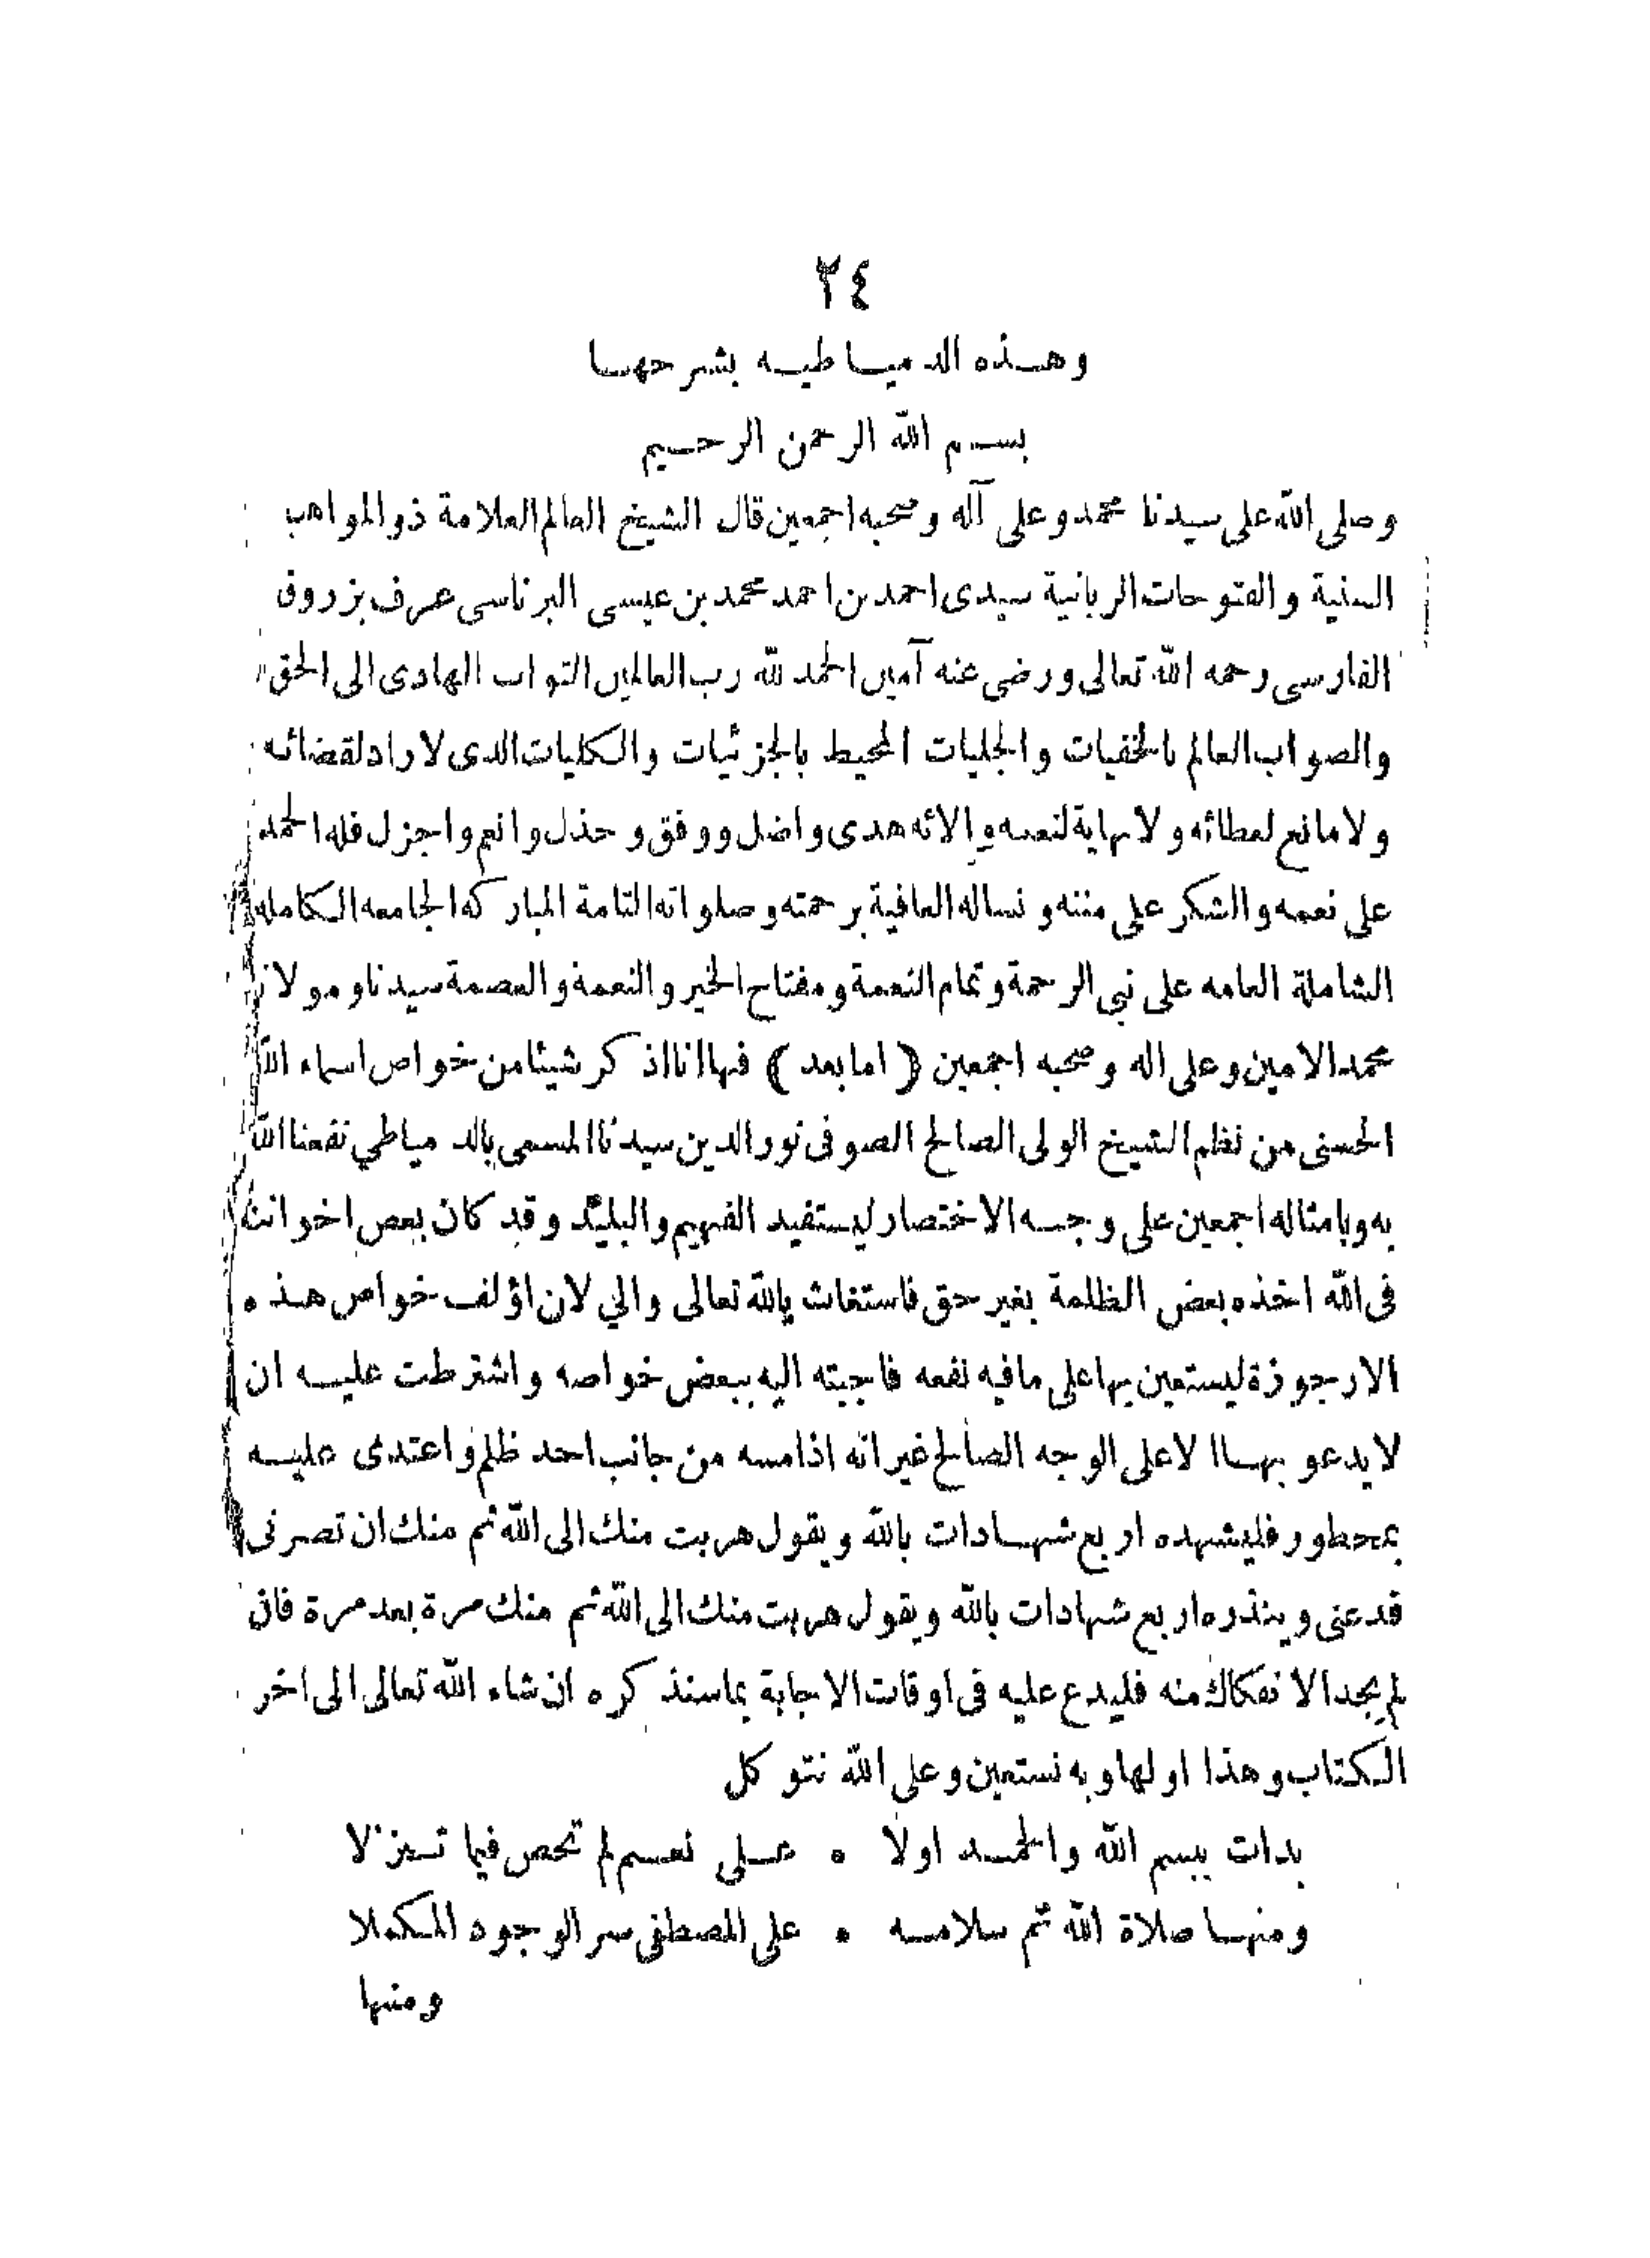 ٢٤
وهذه الدمياطيه بشرحها
بسم الله الرحمن الرحيم
وصلى الله على سيدنا محمد وعلى آله وصحبه اجمعين قال الشيخ العالم العلامة ذو المواهب
السنية والفتوحات الربانية سيدى احمد بن احمد محمد بن عيسى البرناسى عرف بزروق
الفارسى رحمه الله تعالى ورضى عنه آمين الحمد لله رب العالمين التواب الهادى الى الحق
والصواب العالم بالخفيات والجليات المحيط بالجزئيات والكليات الذى لا راد لقضائه
ولا مانع لعطائه ولا نهاية لنعمه والائه هدى واضل ووفق وخذل وانعم واجزل فله الحمد
على نعمه والشكر على مننه ونساله العافية برحمته وصلواته التامة المباركه الجامعه الكامله
الشاملة العامه على نبى الرحمة وتمام النعمة ومفتاح الخير والنعمة والعصمة سيدنا ومولانا
محمد الامين وعلى اله وصحبه اجمعين (اما بعد) فها انا اذكر شيئا من خواص اسماء الله
الحسنى من نظم الشيخ الولى الصالح الصوفى نور الدين سيدنا المسمى بالدمياطي نفعنا الله
به وبامثاله اجمعين على وجه الاختصار ليستفيد الفهيم والبليد وقد كان بعض اخواننا
فى الله اخذه بعض الظلمة بغير حق فاستغاث بالله تعالى والي لان اؤلف خواص هذه
الارجوزة ليستعين بها على ما فيه نفعه فاجبته اليه ببعض خواصه واشترطت عليه ان
لا يدعو بها الا على الوجه الصالح غير انه اذا مسه من جانب احد ظلم واعتدى عليه
بمحظور فليشهده اربع شهادات بالله ويقول هربت منك الى الله ثم منك ان تصرفى
قدعنى وينذره اربع شهادات بالله ويقول هربت منك الى الله ثم منك مرة بعد مرة فان
لم يجد الانفكاك منه فليدع عليه فى اوقات الاجابة بما سنذكره ان شاء الله تعالى الى اخر
الكتاب وهذا اولها وبه نستعين وعلى الله نتوكل
بدات ببسم الله والحمد اولا ٠ على نعم لم تحص فيما تنزلا
ومنها صلاة الله ثم سلامه ٠ على المصطفى سر الوجود المكملا
ومنها